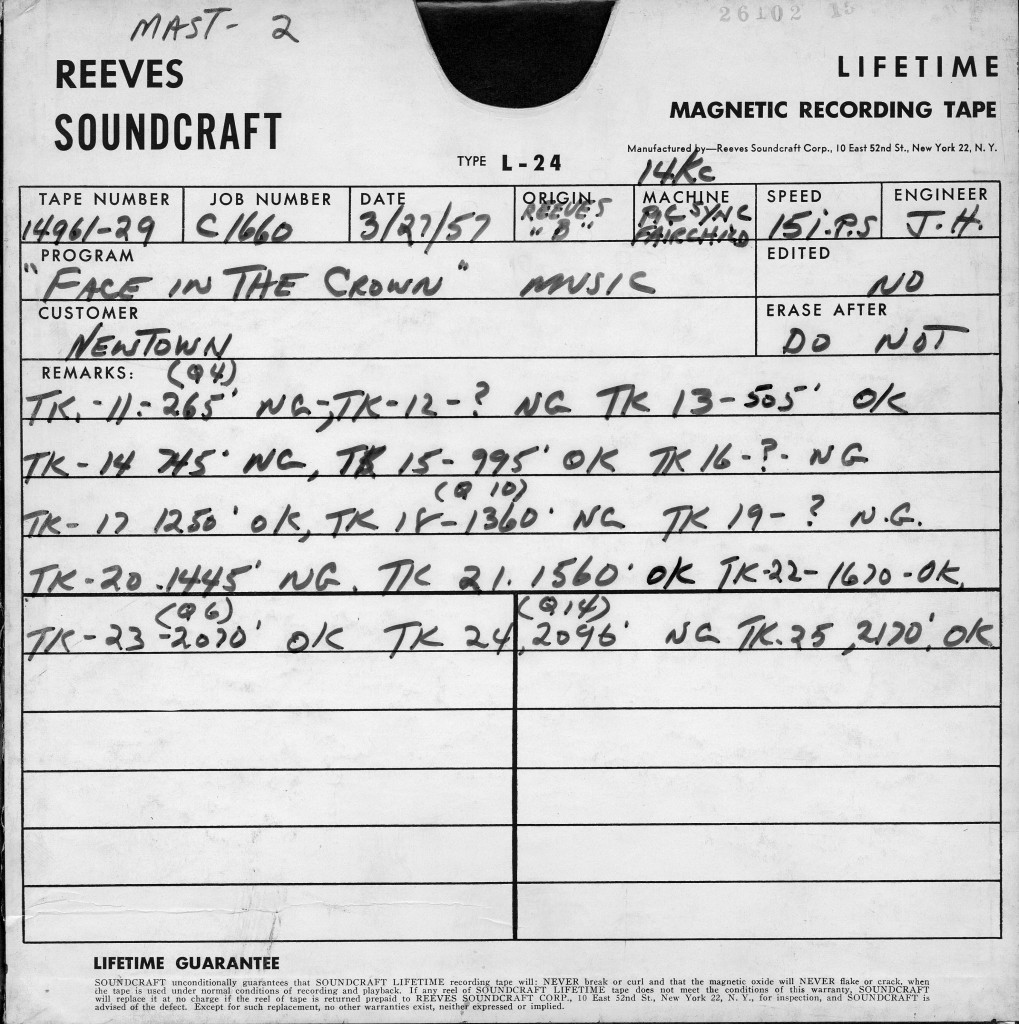 MAST- 2
26102 15
REEVES
SOUNDCRAFT
LIFETIME
MAGNETIC RECORDING TAPE
Manufactured by—Reeves Soundcraft Corp., 10 East 52nd St., New York 22, N. Y.
TYPE L-24
14Kc
TAPE NUMBER JOB NUMBER DATE ORIGIN MACHINE SPEED ENGINEER
14961-29 C1660 3/27/57 REEVES "B" SYNC FAIRCHILD 15 i.P.S J.H.
PROGRAM EDITED
"FACE IN THE CROWN" MUSIC NO
CUSTOMER ERASE AFTER
NEWTOWN DO NOT
REMARKS: (Q4)
TK.-11-265' NG-, TK-12-? NG TK 13-505' OK
TK-14 745' NG, TK 15-995' OK TK 16-?- NG
(Q 10)
TK-17 1250' OK, TK 18-1360' NG TK 19-? N.G.
TK-20.1445' NG. TK 21. 1560' OK TK-22-1670-OK,
(Q6) (Q14)
TK-23-2070' OK TK 24, 2096' NG TK.25, 2170', OK
LIFETIME GUARANTEE
SOUNDCRAFT unconditionally guarantees that SOUNDCRAFT LIFETIME recording tape will: NEVER break or curl and that the magnetic oxide will NEVER flake or crack, when
the tape is used under normal conditions of recording and playback. If any reel of SOUNDCRAFT LIFETIME tape does not meet the conditions of this warranty, SOUNDCRAFT
will replace it at no charge if the reel of tape is returned prepaid to REEVES SOUNDCRAFT CORP., 10 East 52nd St., New York 22, N. Y., for inspection, and SOUNDCRAFT is
advised of the defect. Except for such replacement, no other warranties exist, neither expressed or implied.